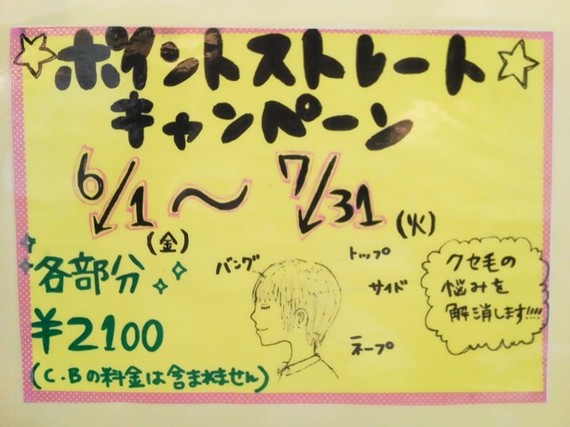 ポイントストレート
キャンペーン
6/1(金)〜7/31(火)
各部分
¥2100
(C.Bの料金は含まれません)
バング
トップ
サイド
ネープ
クセ毛の
悩みを
解消します!!!!